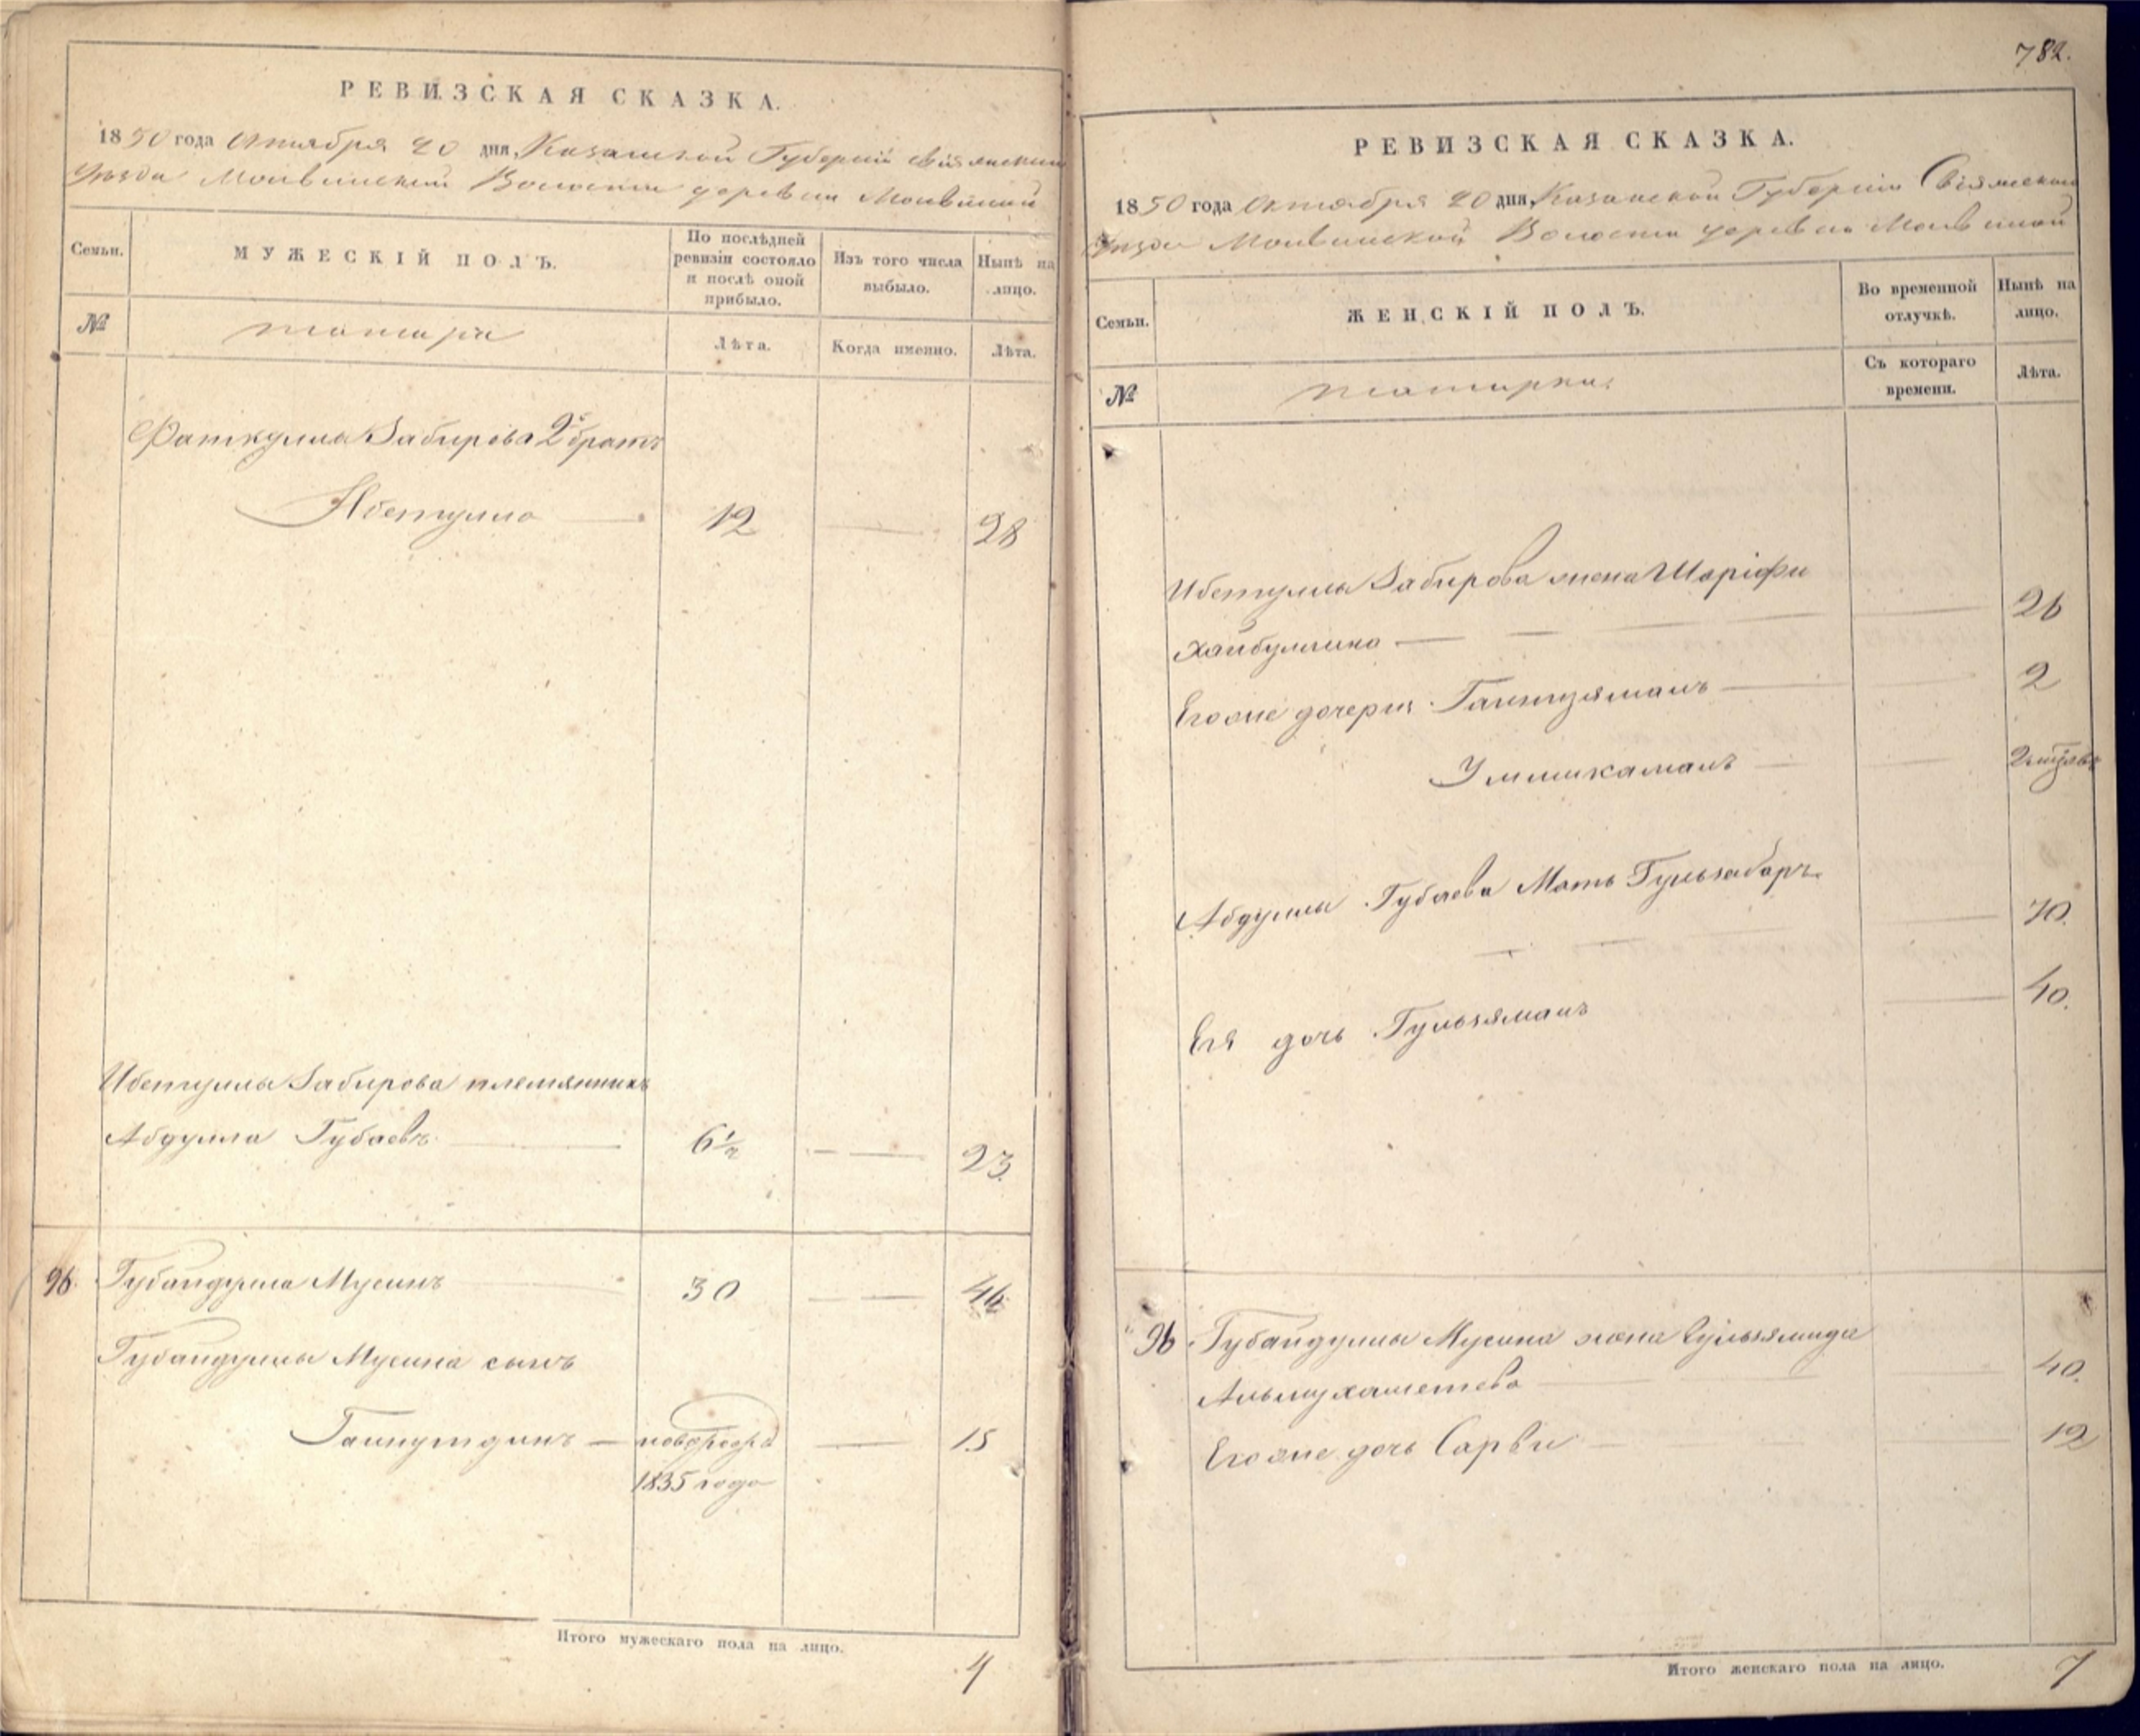 РЕВИЗСКАЯ СКАЗКА.
1850 года Октября 20 дня, Казанской Губерніи Свіяжскаго
Уѣзда Молвинской Волости деревни Молвиной
Семьи.
МУЖЕСКІЙ ПОЛЪ.
По послѣдней ревизіи состояло и послѣ оной прибыло.
Изъ того числа выбыло.
Нынѣ на лицо.
№
татара
Лѣта.
Когда именно.
Лѣта.
Фаткуллы Забирова 2й братъ
Абетулла 12 28
Ибетуллы Забирова племянникъ
Абдулла Губаевъ 6½ 23.
96. Губайдулла Мусинъ 30 46
Губайдуллы Мусина сынъ
Гайнутдинъ — 15
1835 года
Итого мужескаго пола на лицо.
4
782.
РЕВИЗСКАЯ СКАЗКА.
1850 года Октября 20 дня, Казанской Губерніи Свіяжскаго
Уѣзда Молвинской Волости деревни Молвиной
Семьи.
ЖЕНСКІЙ ПОЛЪ.
Во временной отлучкѣ.
Нынѣ на лицо.
№
татарки
Съ котораго времени.
Лѣта.
Ибетуллы Забирова жена Шаріфи
Хайбуллина — 26
Его же дочери Гайнизяманъ 2
Уммикамалъ
Абдуллы Губаева Мать Гульзабаръ
70.
Ея дочь Гульзяманъ 40.
96 Губайдуллы Мусина жена
Альмухаметева 40.
Его же дочь Сарви 12
Итого женскаго пола на лицо.
7